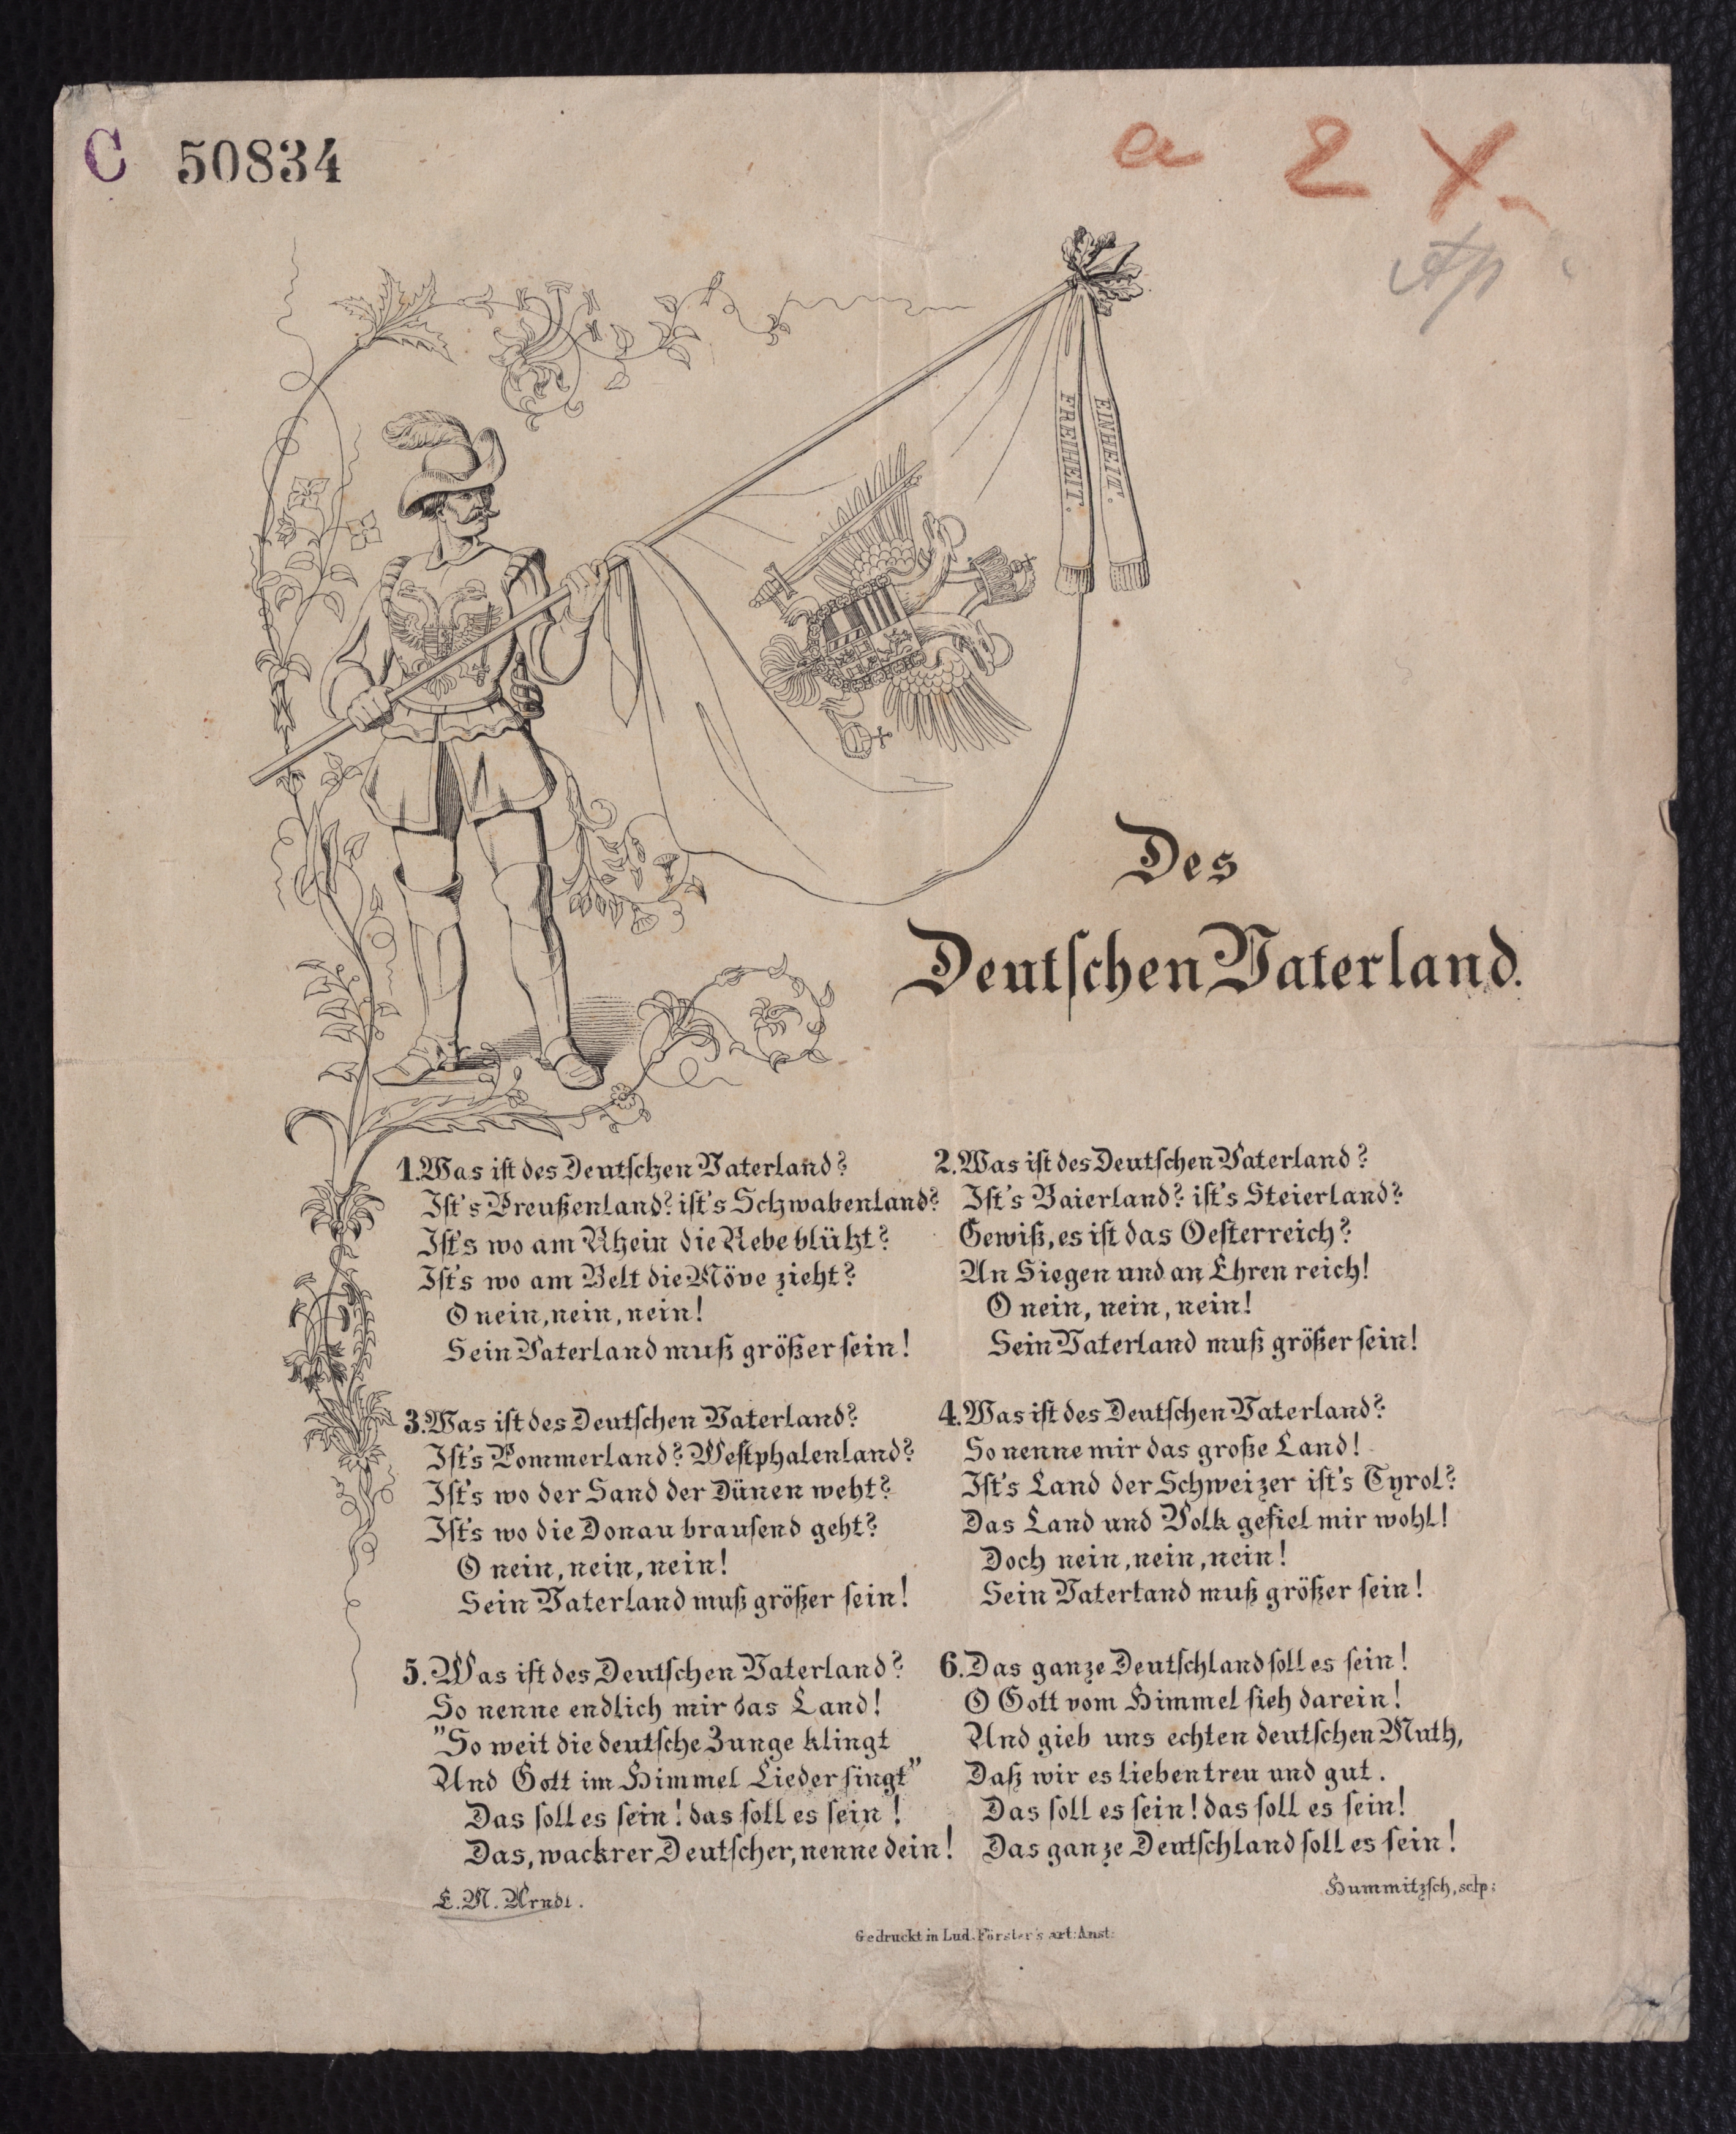 C 50834
a 2 X
FREIHEIT.
EINHEIT.
Des
Deutſchen Vaterland.
1. Was iſt des Deutſchen Vaterland?
Iſt's Preußenland? iſt's Schwabenland?
Iſt's wo am Rhein die Rebe blüht?
Iſt's wo am Belt die Möve zieht?
O nein, nein, nein!
Sein Vaterland muß größer ſein!
2. Was iſt des Deutſchen Vaterland?
Iſt's Baierland? iſt's Steierland?
Gewiß, es iſt das Oeſterreich?
An Siegen und an Ehren reich!
O nein, nein, nein!
Sein Vaterland muß größer ſein!
3. Was iſt des Deutſchen Vaterland?
Iſt's Pommerland? Weſtphalenland?
Iſt's wo der Sand der Dünen weht?
Iſt's wo die Donau brauſend geht?
O nein, nein, nein!
Sein Vaterland muß größer ſein!
4. Was iſt des Deutſchen Vaterland?
So nenne mir das große Land!
Iſt's Land der Schweizer iſt's Tyrol?
Das Land und Volk gefiel mir wohl!
Doch nein, nein, nein!
Sein Vatertand muß größer ſein!
5. Was iſt des Deutſchen Vaterland?
So nenne endlich mir das Land!
"So weit die deutſche Zunge klingt
Und Gott im Himmel Lieder ſingt"
Das ſoll es ſein! das ſoll es ſein!
Das, wackrer Deutſcher, nenne dein!
6. Das ganze Deutſchland ſoll es ſein!
O Gott vom Himmel ſieh darein!
Und gieb uns echten deutſchen Muth,
Daß wir es lieben treu und gut.
Das ſoll es ſein! das ſoll es ſein!
Das ganze Deutſchland ſoll es ſein!
E. M. Arndt.
Hummitzſch, sclp:
Gedruckt in Lud. Förster's art: Anst: